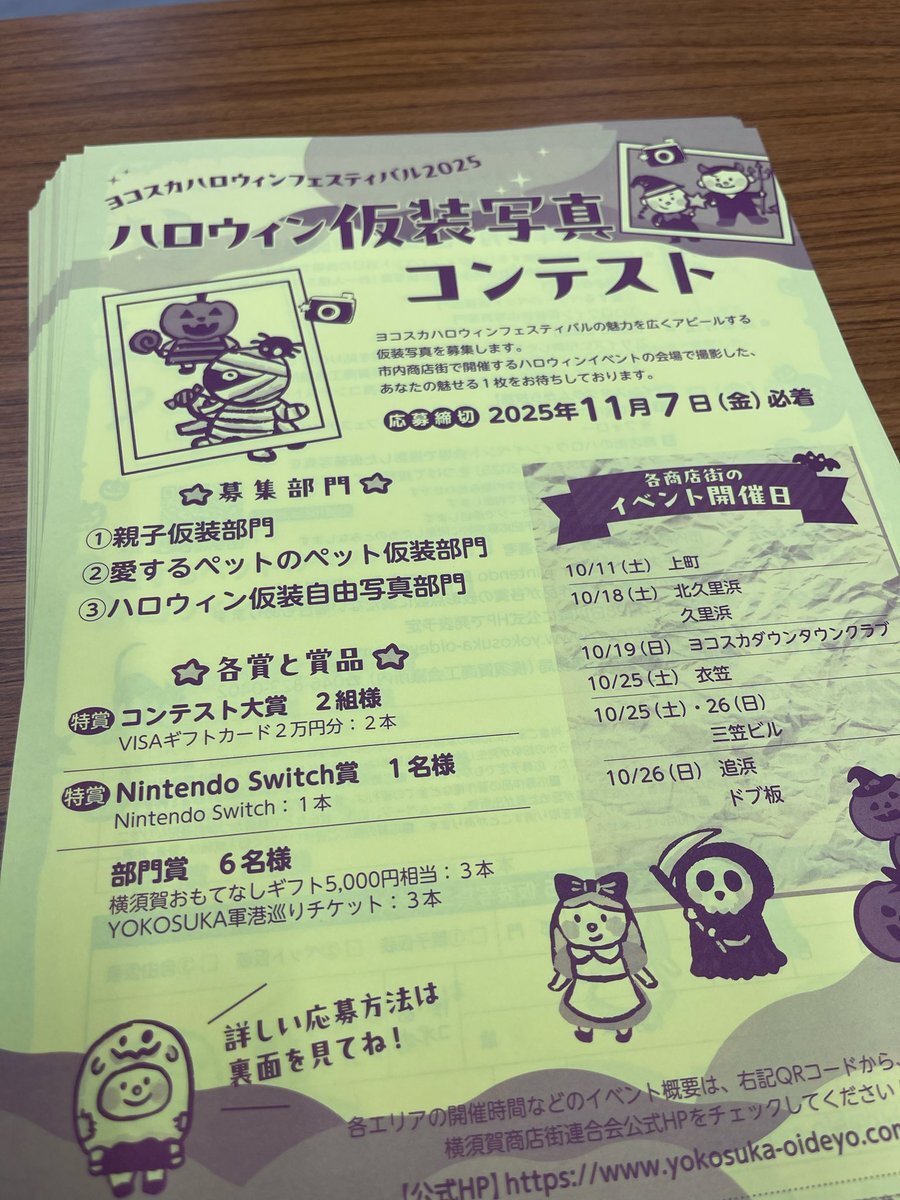 ヨコスカハロウィンフェスティバル2025
ハロウィン仮装写真
コンテスト
ヨコスカハロウィンフェスティバルの魅力を広くアピールする
仮装写真を募集します。
市内商店街で開催するハロウィンイベントの会場で撮影した、
あなたの魅せる1枚をお待ちしております。
応募締切 2025年11月7日(金)必着
募集部門
①親子仮装部門
②愛するペットのペット仮装部門
③ハロウィン仮装自由写真部門
各賞と賞品
特賞 コンテスト大賞 2組様
VISAギフトカード2万円分:2本
特賞 Nintendo Switch賞 1名様
Nintendo Switch:1本
部門賞 6名様
横須賀おもてなしギフト5,000円相当:3本
YOKOSUKA軍港巡りチケット:3本
各商店街の
イベント開催日
10/11(土) 上町
10/18(土) 北久里浜
久里浜
10/19(日) ヨコスカダウンタウンクラブ
10/25(土) 衣笠
10/25(土)・26(日)
三笠ビル
10/26(日) 追浜
ドブ板
詳しい応募方法は
裏面を見てね!
各エリアの開催時間などのイベント概要は、右記QRコードから、
横須賀商店街連合会公式HPをチェックしてください
【公式HP】https://www.yokosuka-oideyo.com